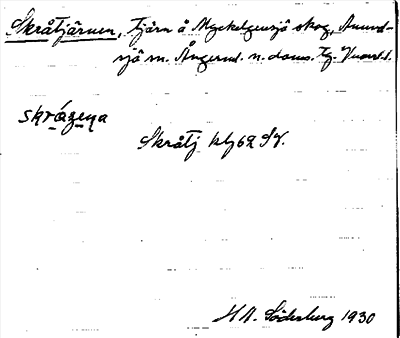 Skråtjärnen, tjärn å Myckelgensjö skog, Anund-
sjö sn. Ångerml. n. doms. tg.
skrázena
Skråtj
H A. Söderberg 1930